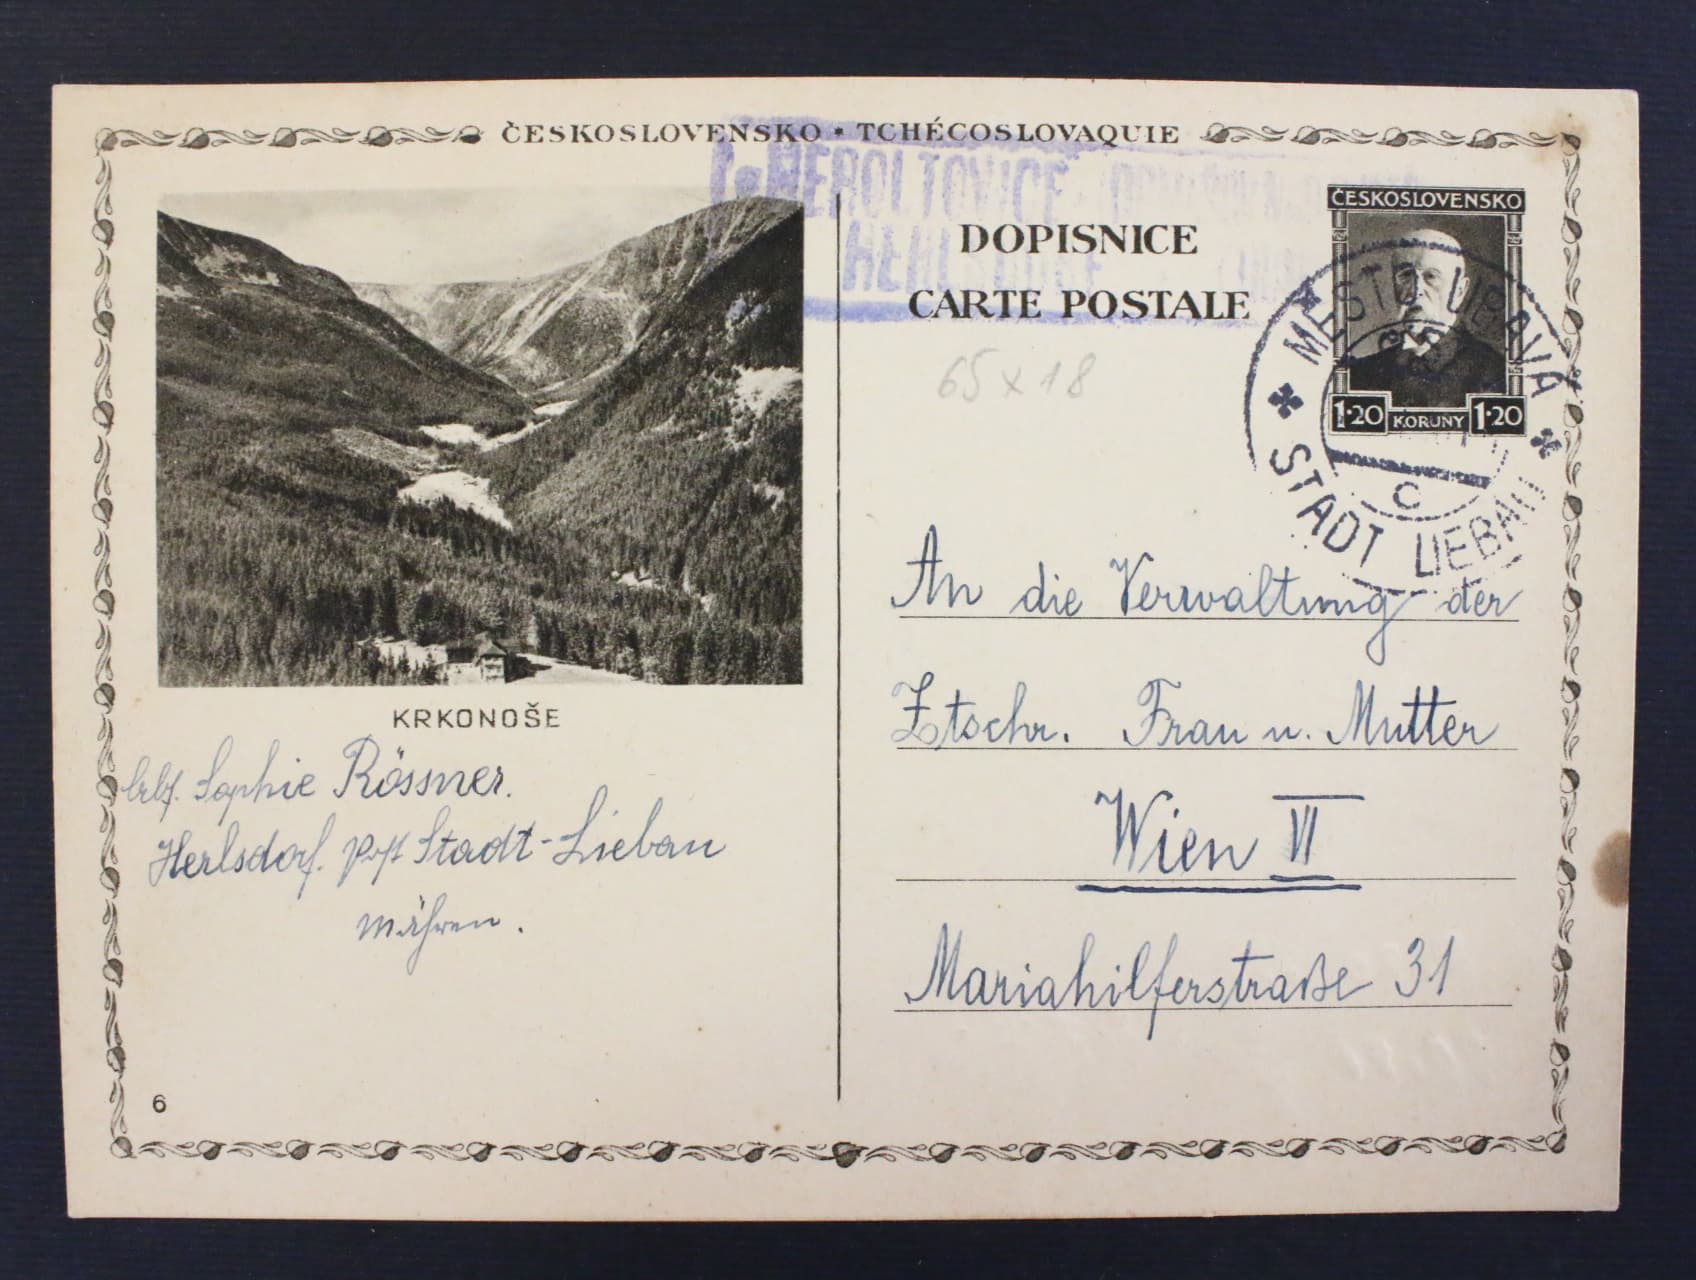 ČESKOSLOVENSKO • TCHÉCOSLOVAQUIE
HEROLTOVICE
HERLSDORF
DOPISNICE
CARTE POSTALE
ČESKOSLOVENSKO
1·20 KORUNY 1·20
MĚSTO LIBAVA
C
STADT LIEBAU
65 x 18
KRKONOŠE
Sophie Rössner.
Herlsdorf. Post Stadt-Liebau
Mähren.
6
An die Verwaltung der
Ztschr. Frau u. Mutter
Wien VI
Mariahilferstraße 31